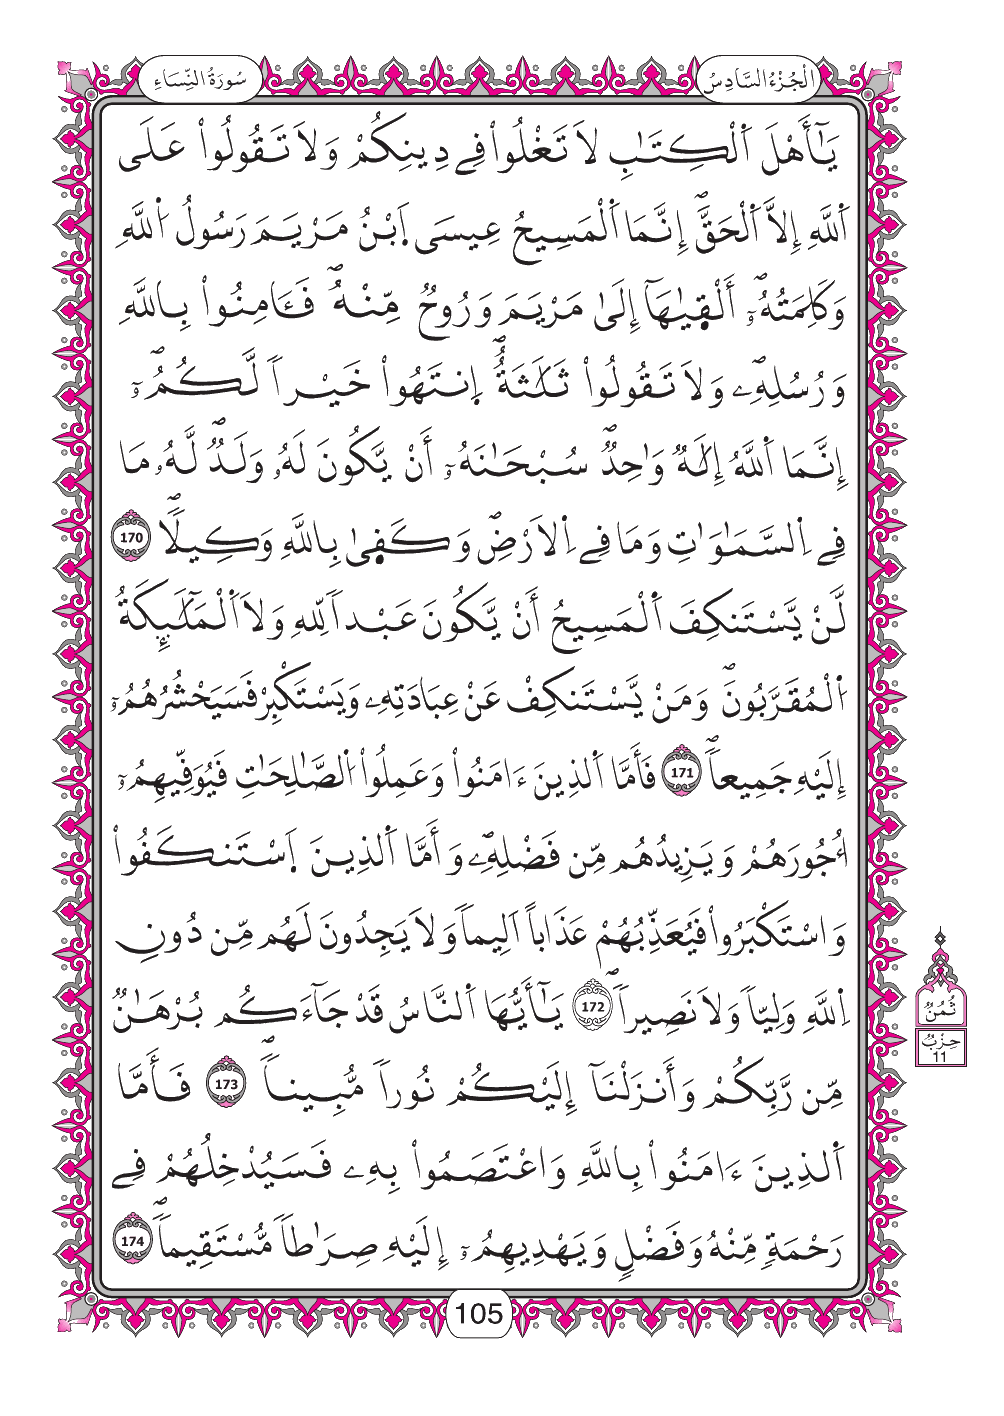 سُورَةُ النِّسَاءِ
الْجُزْءُ السَّادِسُ
يَٰٓأَهْلَ اَ۬لْكِتَٰبِ لاَ تَغْلُواْ فِے دِينِكُمْ وَلاَ تَقُولُواْ عَلَى
اَ۬للَّهِ إِلاَّ اَ۬لْحَقَّۖ إِنَّمَا اَ۬لْمَسِيحُ عِيسَى اَ۪بْنُ مَرْيَمَ رَسُولُ اُ۬للَّهِ
وَكَلِمَتُهُۥٓۖ أَلْق۪يٰهَآ إِلَىٰ مَرْيَمَ وَرُوحٌ مِّنْهُۖ فَـَٔامِنُواْ بِاللَّهِ
وَرُسُلِهِۦۖ وَلاَ تَقُولُواْ ثَلَٰثَةٌۖ اِ۪نتَهُواْ خَيْراً لَّكُمُۥٓۖ
إِنَّمَا اَ۬للَّهُ إِلَٰهٌ وَٰحِدٌۖ سُبْحَٰنَهُۥٓ أَنْ يَّكُونَ لَهُۥ وَلَدٌۖ لَّهُۥ مَا
فِے اِ۬لسَّمَٰوَٰتِ وَمَا فِے اِ۬لاَرْضِۖ وَكَف۪ىٰ بِاللَّهِ وَكِيلًاۖ 170
لَّنْ يَّسْتَنكِفَ اَ۬لْمَسِيحُ أَنْ يَّكُونَ عَبْداً لِّلهِ وَلاَ اَ۬لْمَلَٰٓئِكَةُ
اُ۬لْمُقَرَّبُونَۖ وَمَنْ يَّسْتَنكِفْ عَنْ عِبَادَتِهِۦ وَيَسْتَكْبِرْ فَسَيَحْشُرُهُمُۥٓ
إِلَيْهِ جَمِيعاًۖ 171 فَأَمَّا اَ۬لذِينَ ءَامَنُواْ وَعَمِلُواْ اُ۬لصَّٰلِحَٰتِ فَيُوَفِّيهِمُۥٓ
أُجُورَهُمْ وَيَزِيدُهُم مِّن فَضْلِهِۦۖ وَأَمَّا اَ۬لذِينَ اَ۪سْتَنكَفُواْ
وَاسْتَكْبَرُواْ فَيُعَذِّبُهُمْ عَذَاباً اَلِيماً وَلاَ يَجِدُونَ لَهُم مِّن دُونِ
اِ۬للَّهِ وَلِيّاً وَلاَ نَصِيراًۖ 172 يَٰٓأَيُّهَا اَ۬لنَّاسُ قَدْ جَآءَكُم بُرْهَٰنٌ
مِّن رَّبِّكُمْ وَأَنزَلْنَآ إِلَيْكُمْ نُوراً مُّبِيناًۖ 173 فَأَمَّا
اَ۬لذِينَ ءَامَنُواْ بِاللَّهِ وَاعْتَصَمُواْ بِهِۦ فَسَيُدْخِلُهُمْ فِے
رَحْمَةٍ مِّنْهُ وَفَضْلٍ وَيَهْدِيهِمُۥٓ إِلَيْهِ صِرَٰطاً مُّسْتَقِيماًۖ 174
ثُمُنٌ
حِزْبٌ
11
105